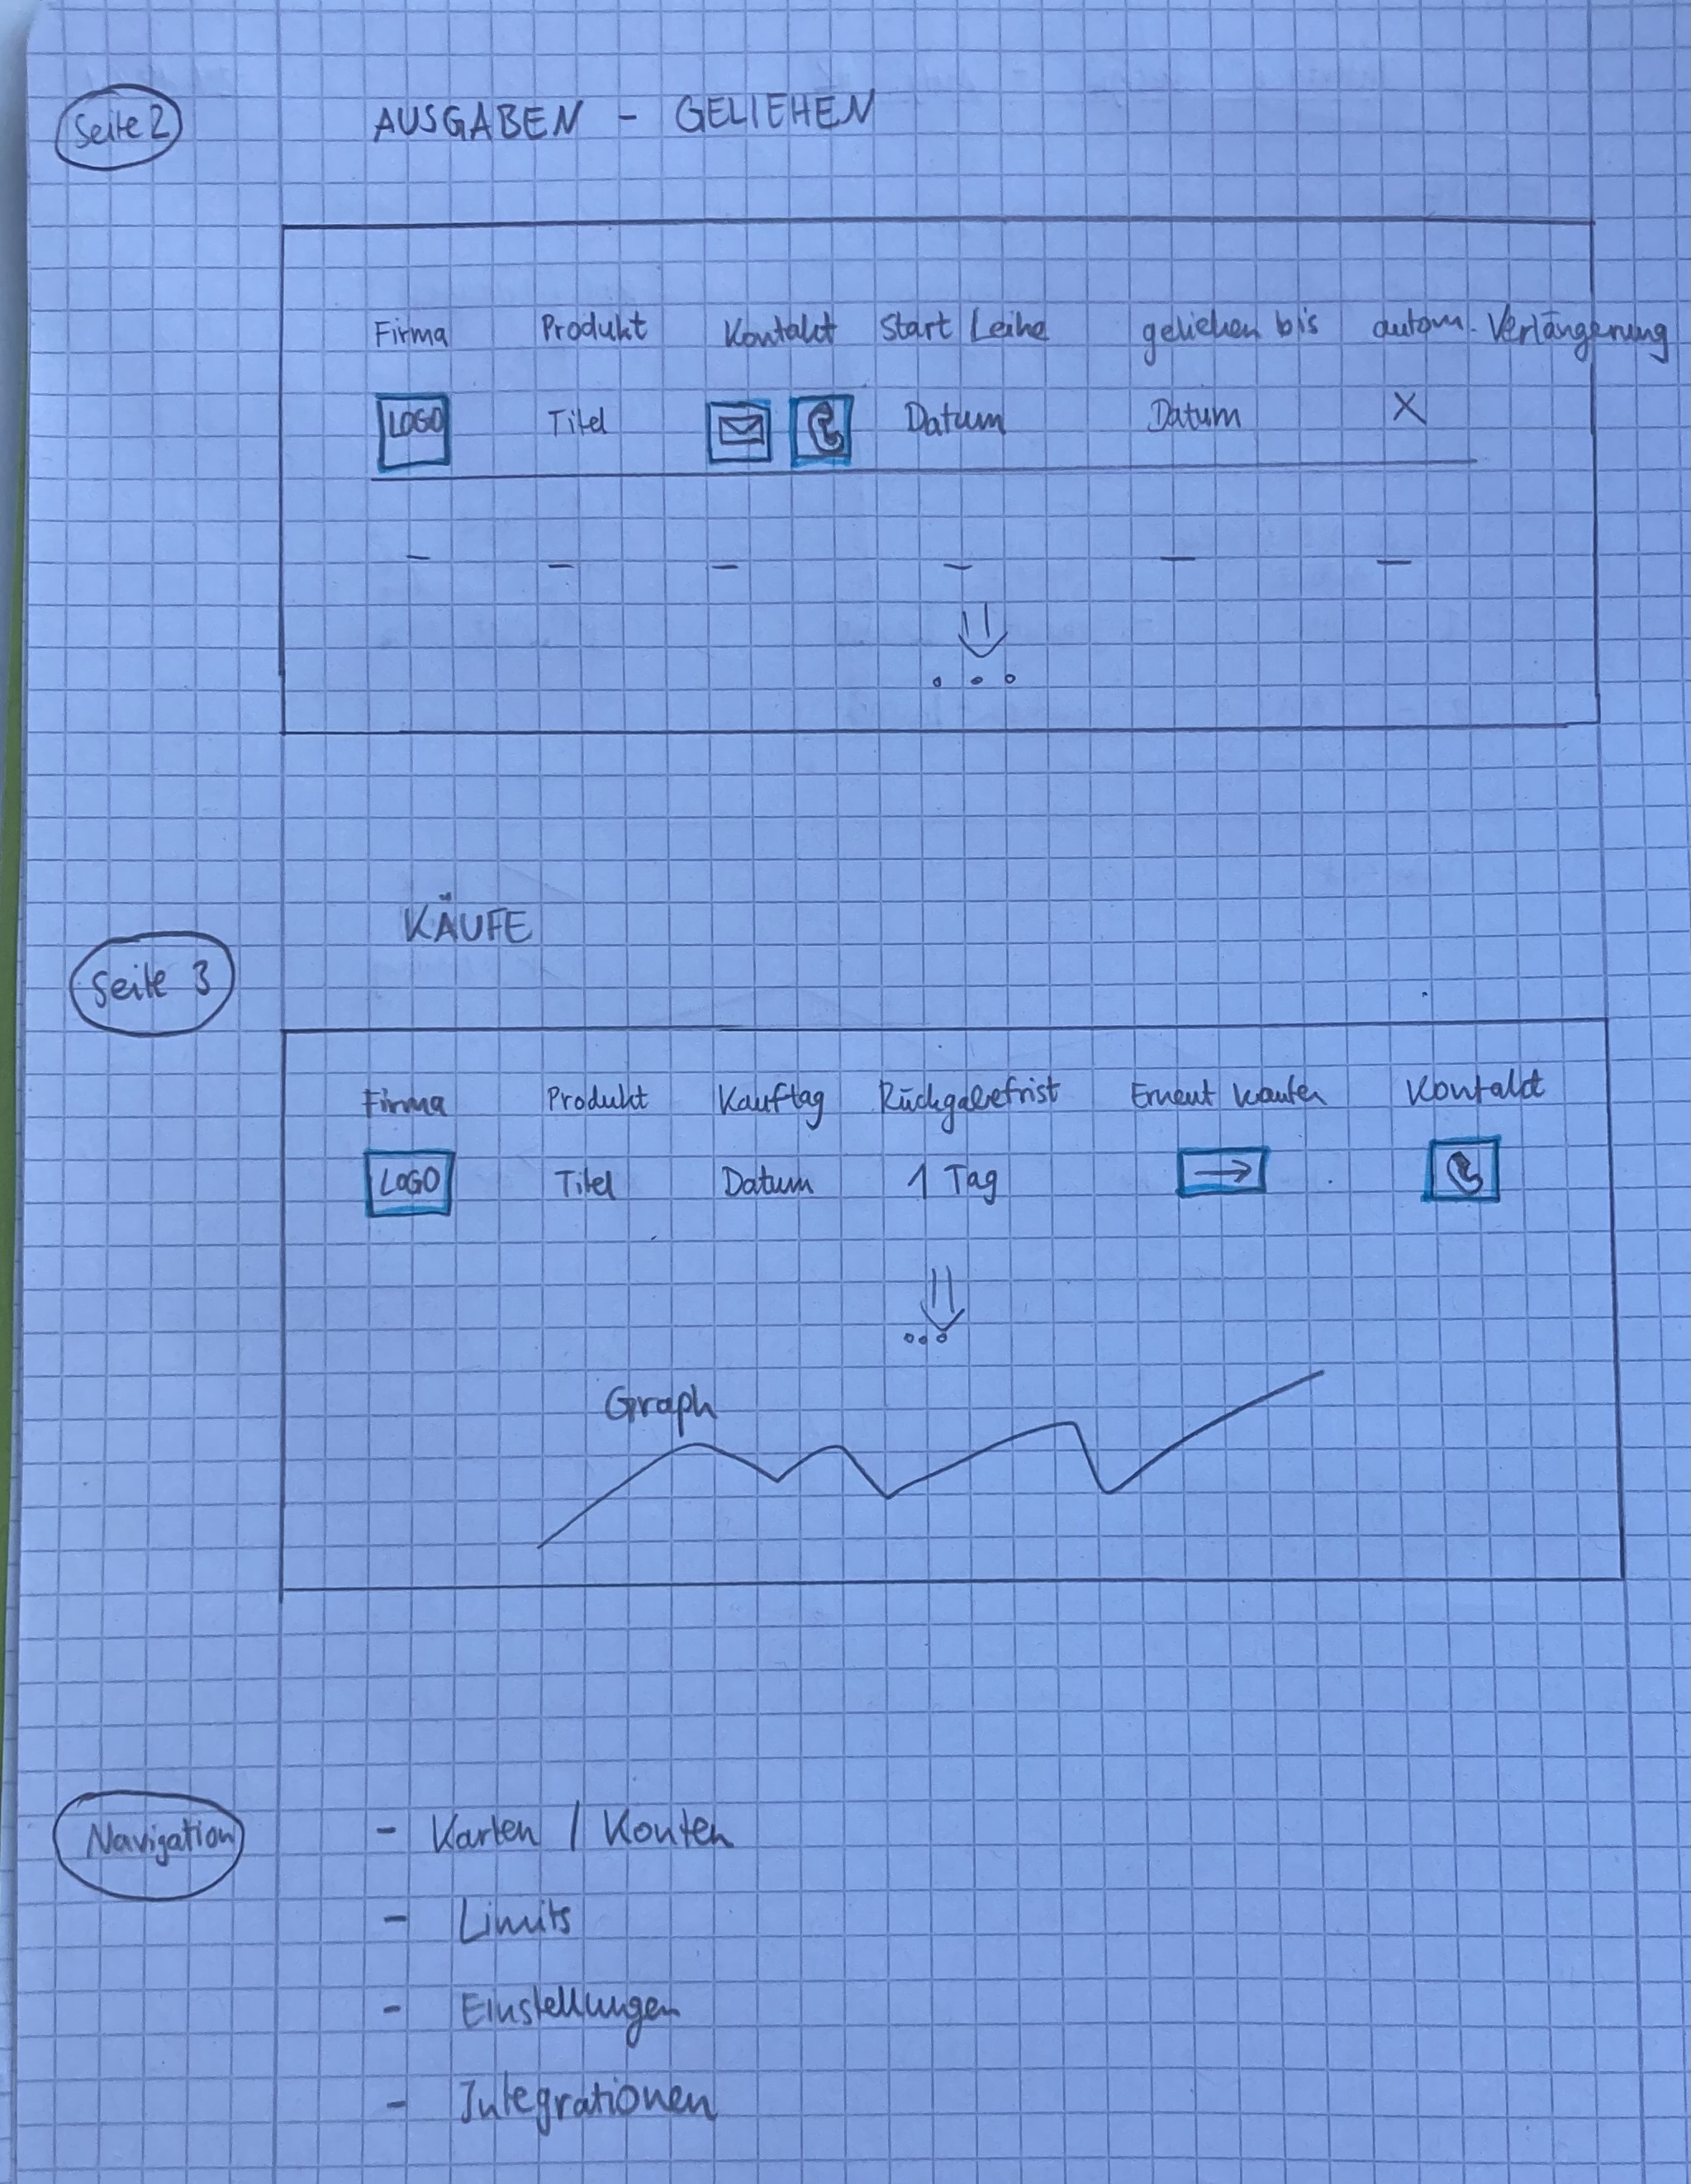 Seite 2
AUSGABEN - GELIEHEN
Firma Produkt Kontakt Start Leihe geliehen bis autom. Verlängerung
LOGO Titel Datum Datum X
- - - - - -
Seite 3
KÄUFE
Firma Produkt Kauftag Rückgabefrist Erneut kaufen Kontakt
LOGO Titel Datum 1 Tag
Graph
Navigation
- Karten / Konten
- Limits
- Einstellungen
- Integrationen